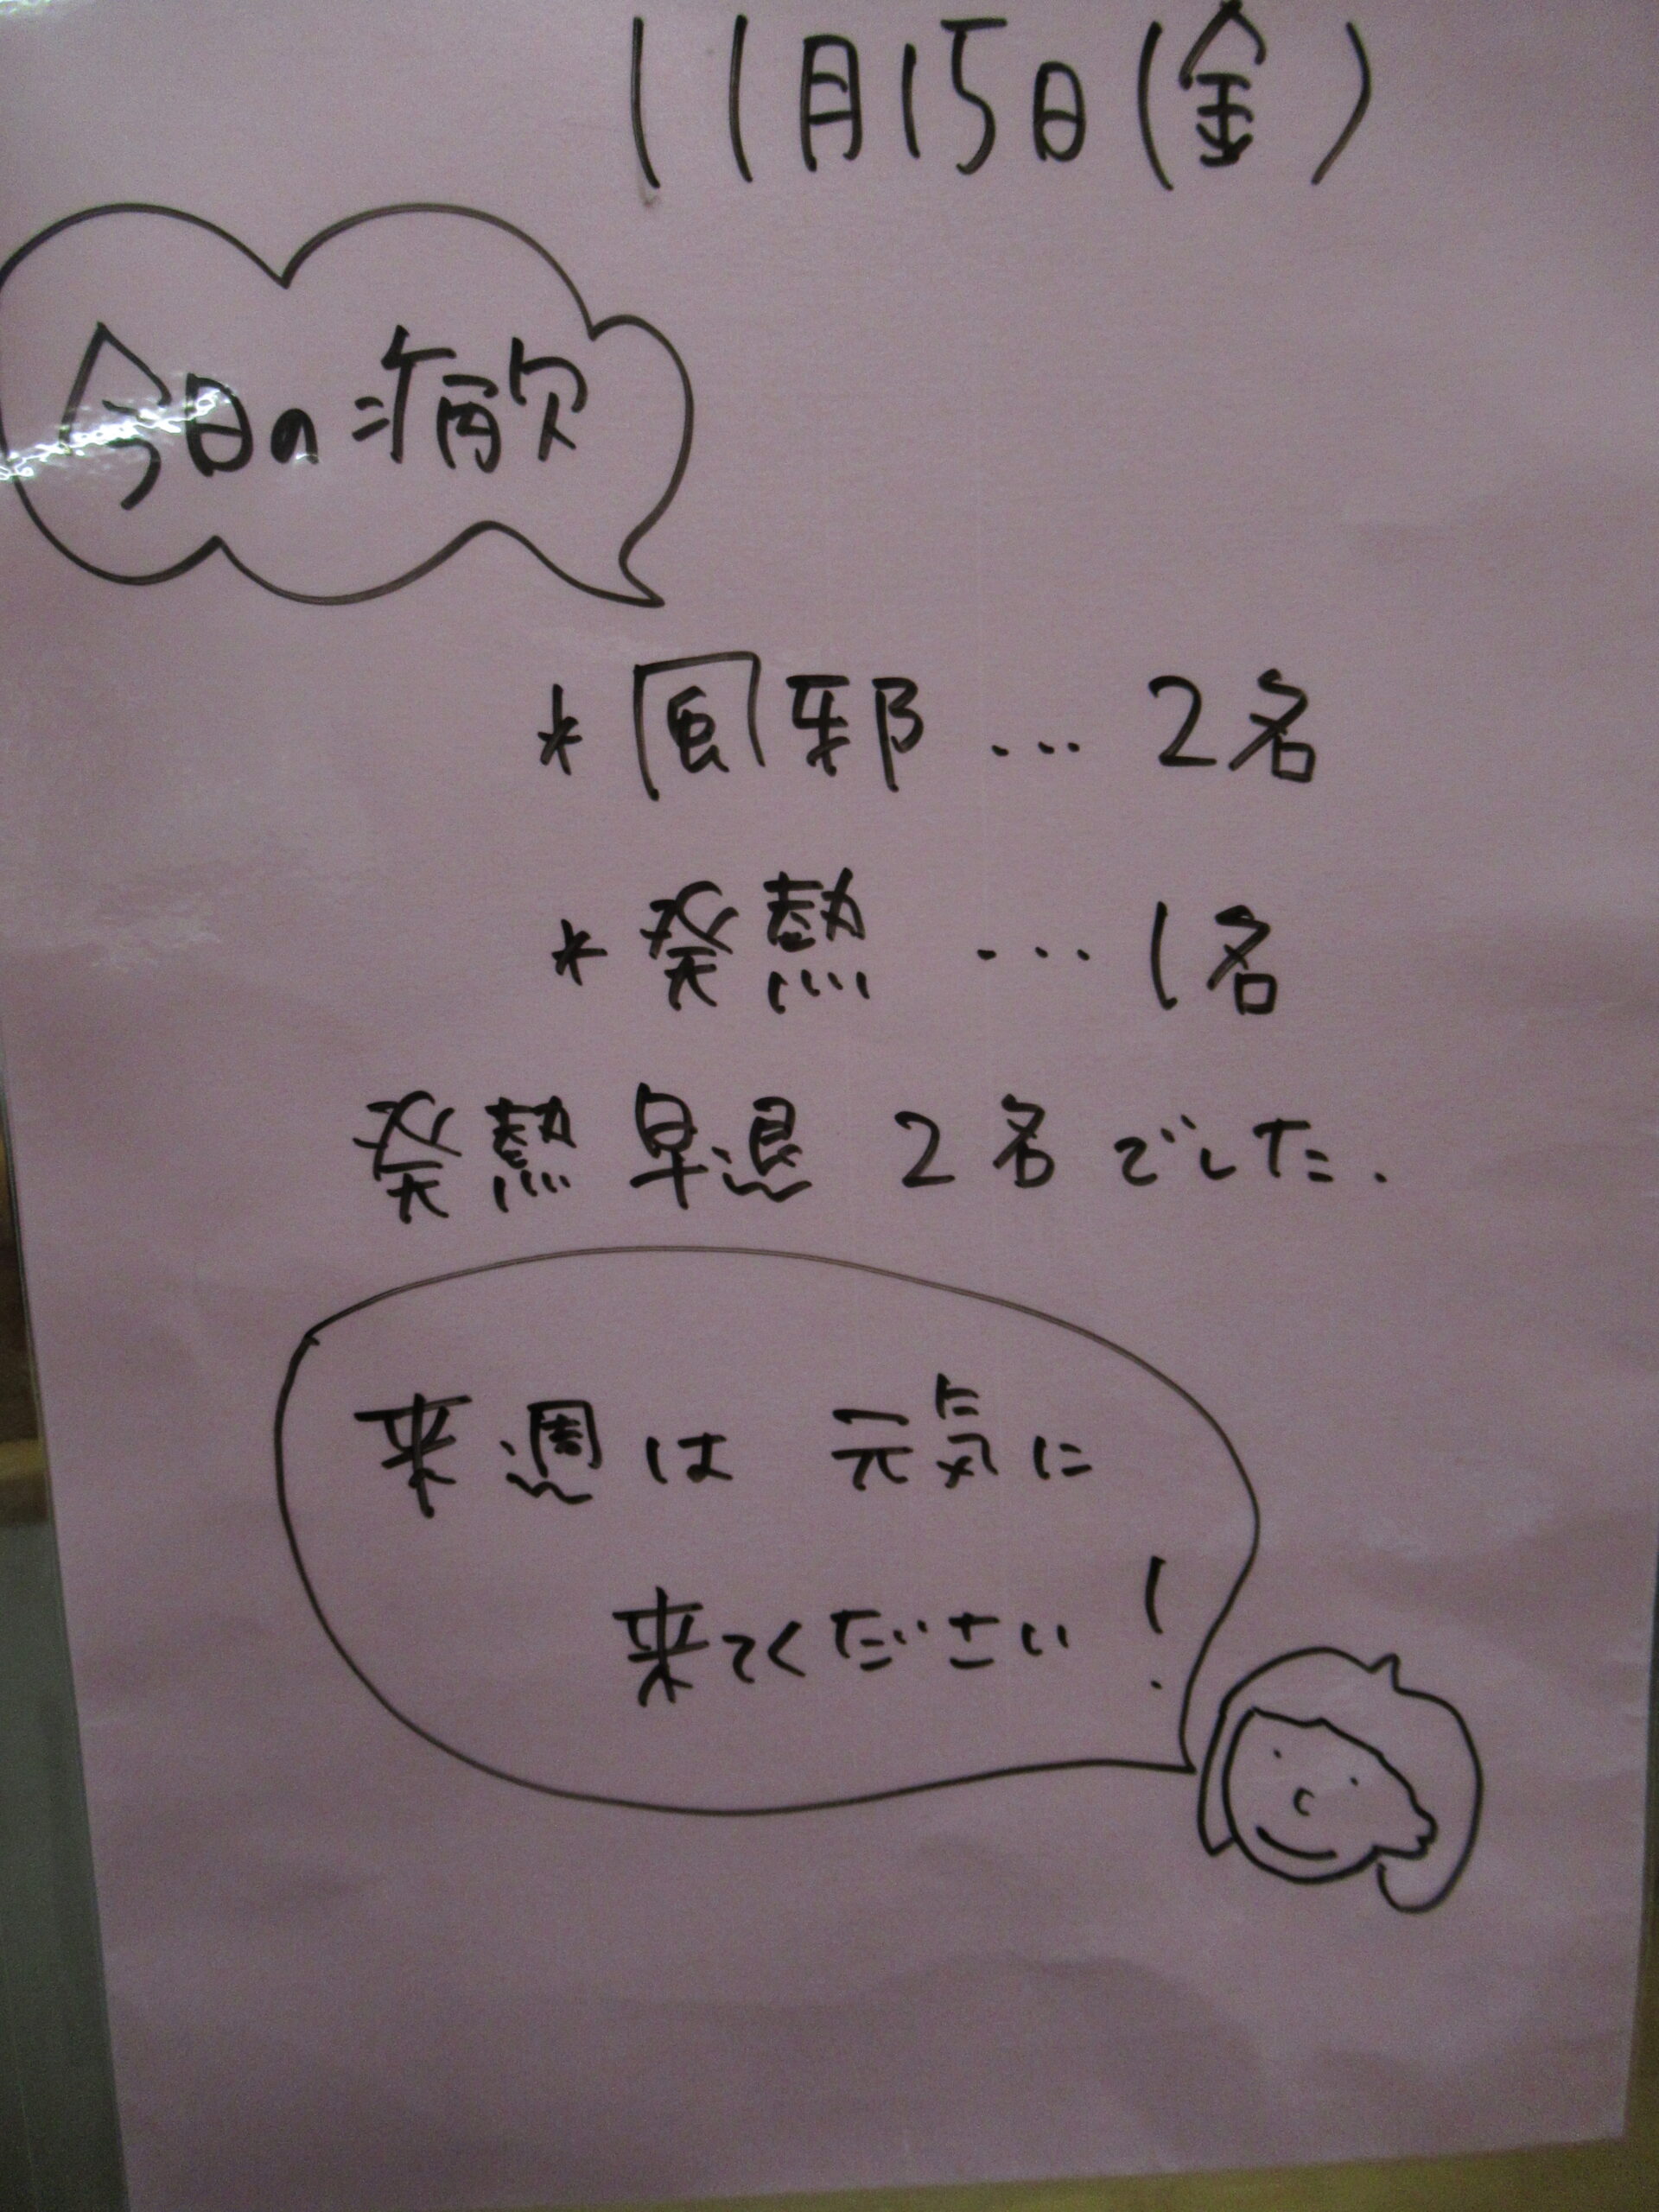 11月15日(金)
今日の病欠
*風邪…2名
*発熱…1名
発熱早退2名でした.
来週は元気に
来てください!